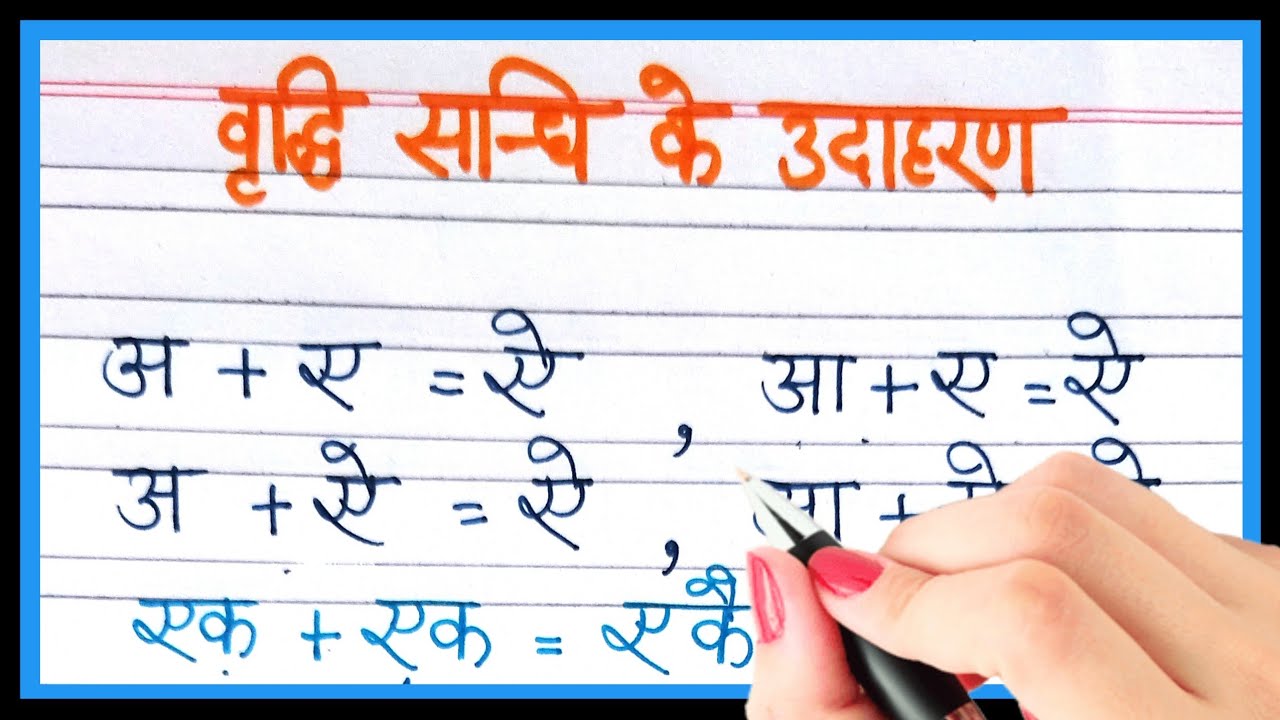 वृद्धि सन्धि के उदाहरण
अ + ए = ऐ , आ + ए = ऐ
अ + ऐ = ऐ , आ + ऐ ऐ
एक + एक = एकै